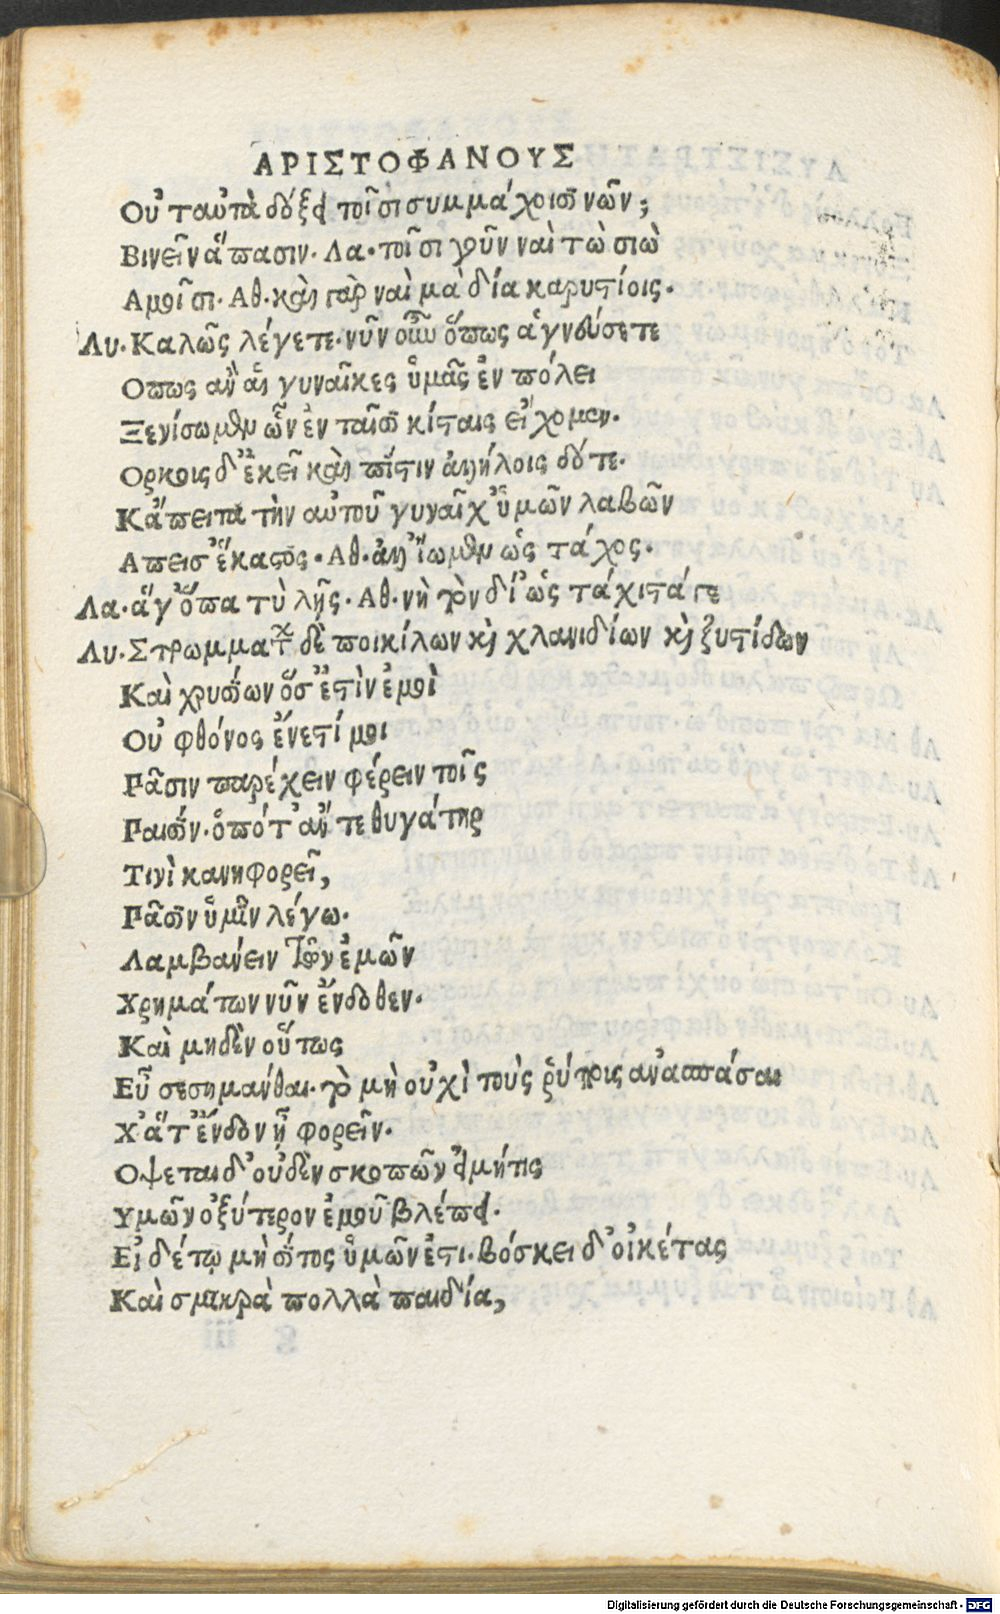 ΑΡΙΣΤΟΦΑΝΟΥΣ
Οὐ ταὐτὰ δόξει τοῖσι συμμάχοισι νῶν;
Βινεῖν ἅπασιν. Λα. τοῖσι γοῦν ναὶ τὼ σιὼ
Αμοῖσι. Αθ. καὶ γὰρ ναὶ μὰ δία καρυστίοις.
Λυ. Καλῶς λέγετε. νῦν οὖν ὅπως ἁγνεύσετε
Οπως ἂν αἱ γυναῖκες ὑμᾶς ἐν πόλει
Ξενίσωμεν ὧν ἐν ταῖσι κίσταις εἴχομεν.
Ορκοις δ' ἐκεῖ καὶ πίστιν ἀλλήλοις δότε.
Κἄπειτα τὴν αὑτοῦ γυναῖχ' ὑμῶν λαβῶν
Απεισ' ἕκαστος. Αθ. ἀλλ' ἴωμεν ὡς τάχος.
Λα. ἄγ' ὅπα τὺ λῆς. Αθ. νὴ τὸν δί' ὡς τάχιστά γε
Λυ. Στρωμμάτων δὲ ποικίλων καὶ χλανιδίων καὶ ξυστίδων
Καὶ χρυσίων ὅσ' ἐστὶν ἐμοὶ
Οὐ φθόνος ἔνεστί μοι
Πᾶσιν παρέχειν φέρειν τοῖς
Παισίν. ὁπότ' ἄν τε θυγάτηρ
Τινὶ κανηφορεῖ,
Πᾶσιν ὑμῖν λέγω.
Λαμβάνειν τῶν ἐμῶν
Χρημάτων νῦν ἔνδοθεν.
Καὶ μηδὲν οὕτως
Εὖ σεσημάνθαι. τὸ μὴ οὐχὶ τοὺς ῥύπους ἀνασπάσαι
Χἄτ' ἔνδον ᾖ φορεῖν.
Οψεται δ' οὐδὲν σκοπῶν εἰ μήτις
Υμῶν ὀξύτερον ἐμοῦ βλέπει.
Εἰ δέ τῳ μὴ σῖτος ὑμῶν ἔστι. βόσκει δ' οἰκέτας
Καὶ σμικρὰ πολλὰ παιδία,
Digitalisierung gefördert durch die Deutsche Forschungsgemeinschaft - DFG